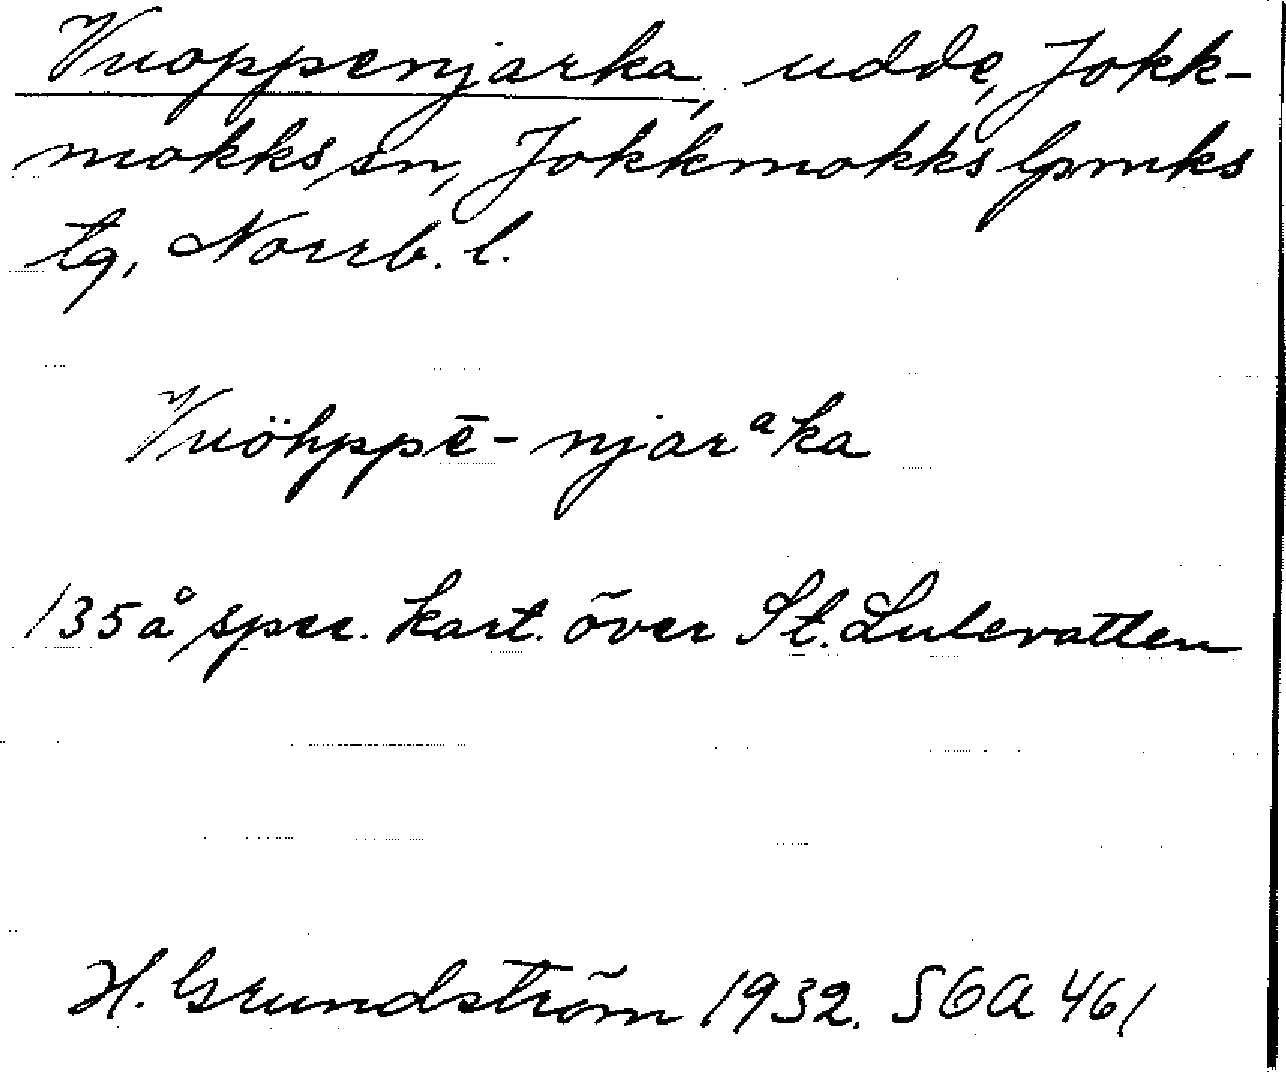 Vuoppenjarka, udde, Jokk-
mokks sn, Jokkmokks lpmks
tg, Norrb. l.
Vuöhppē- njarᵃka
135 å spec. kart. över St. Lulevatten
H. Grundström 1932. SOA 461